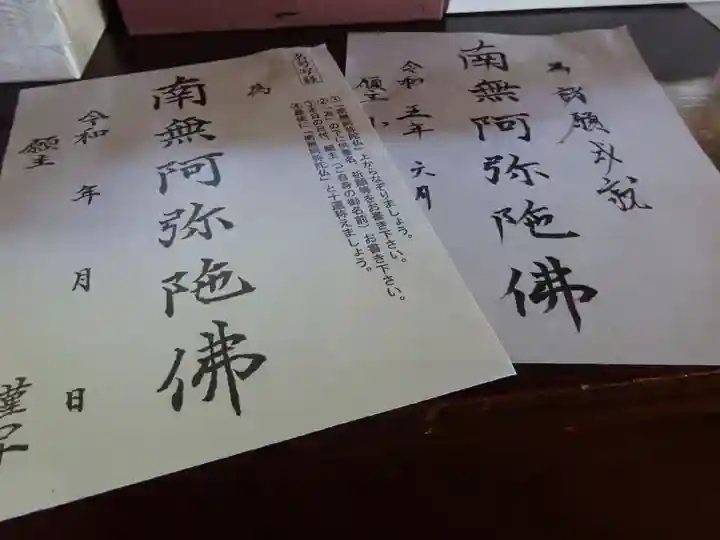 為
南無阿弥陀佛
令和 年 月 日
願主
謹写
①「南無阿弥陀仏」上からなぞりましょう。
②「為」の下に供養名、祈願等をお書き下さい。
③本日の日付、願主(ご自身の御名前)お書き下さい。
④最後に「南無阿弥陀仏」と十遍称えましょう。
為 諸願成就
南無阿弥陀佛
令和 五年 六月
願主